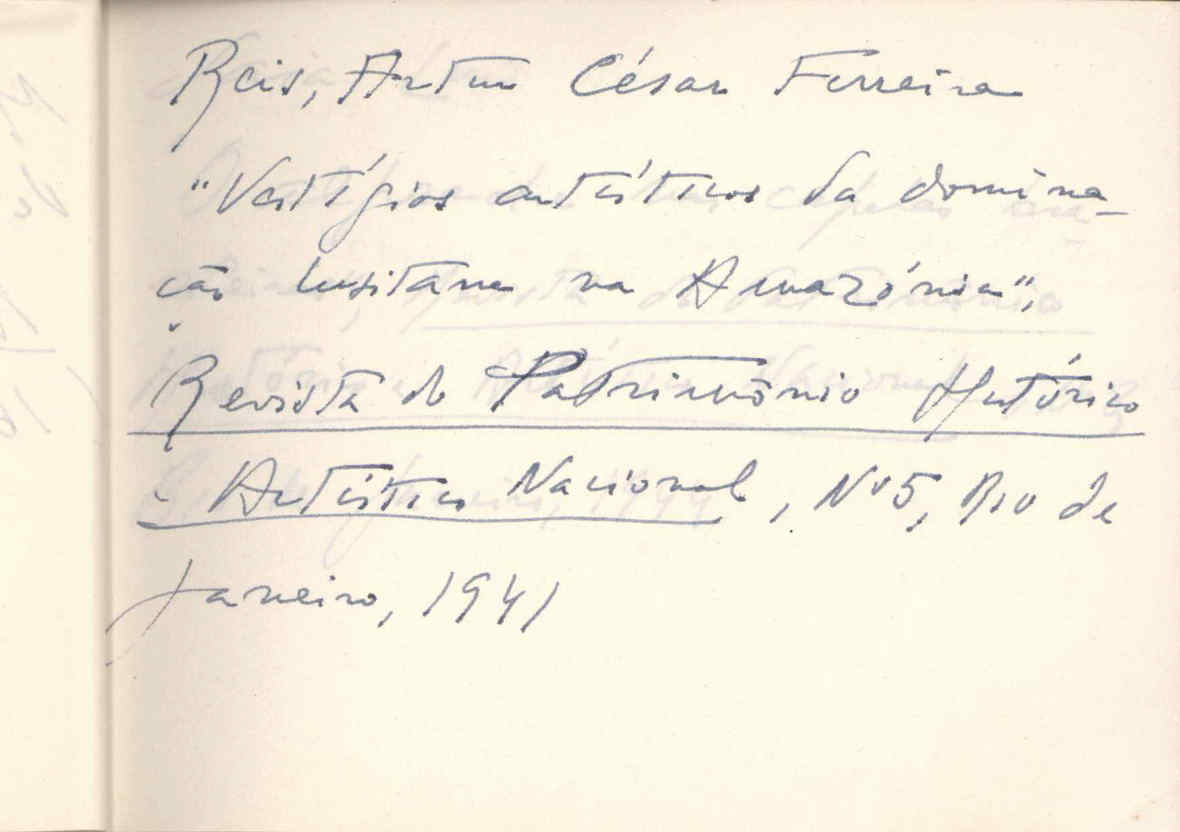 Reis, Artur César Ferreira
"Vestígios artísticos da domina-
ção lusitana na Amazónia",
Revista do Patrimônio Histórico
e Artístico Nacional, Nº 5, Rio de
Janeiro, 1941